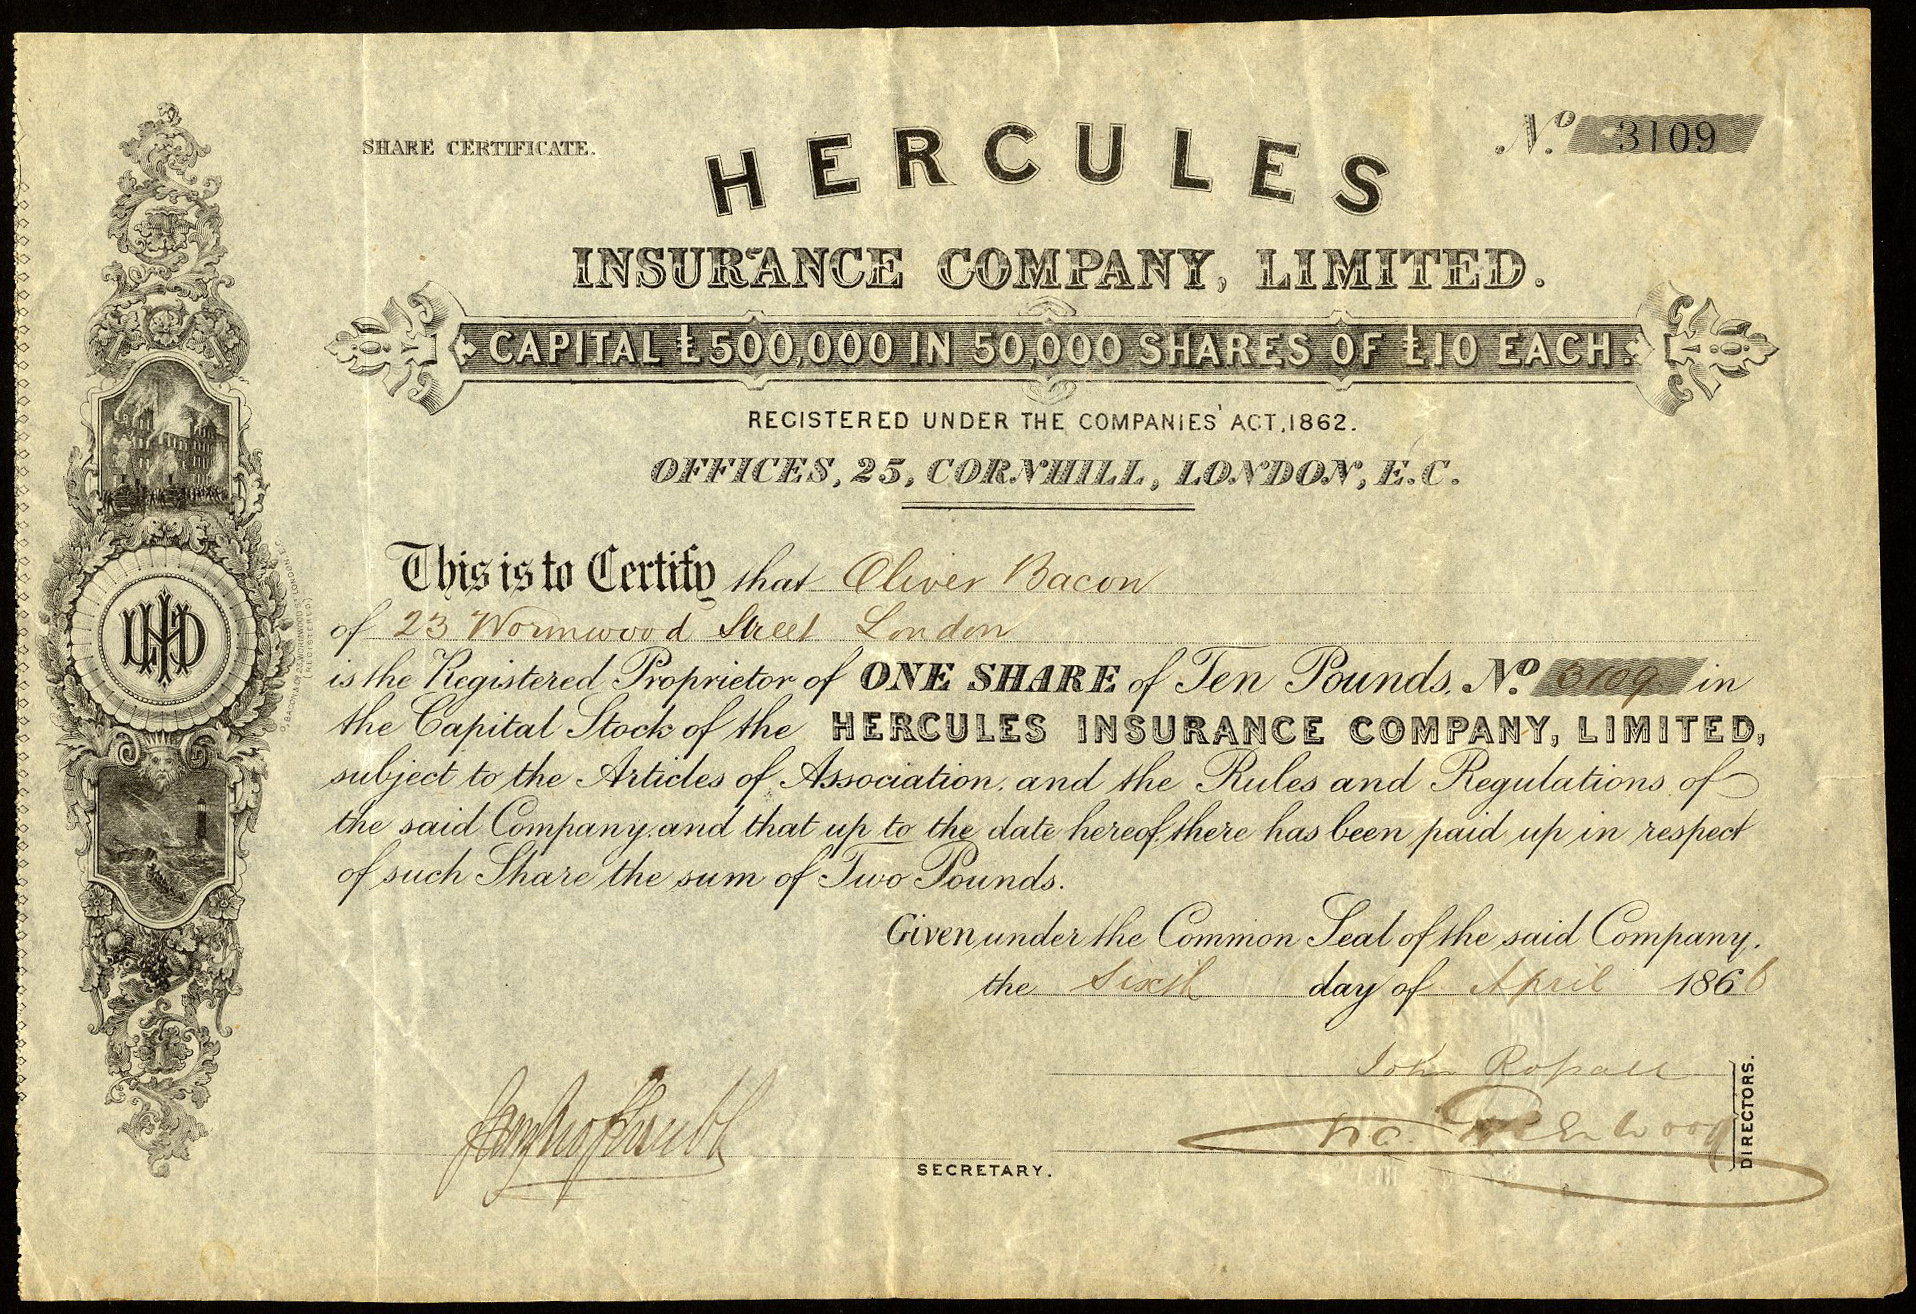 SHARE CERTIFICATE.
No. 3109
HERCULES
INSURANCE COMPANY, LIMITED.
CAPITAL £500,000 IN 50,000 SHARES OF £10 EACH.
REGISTERED UNDER THE COMPANIES' ACT, 1862.
OFFICES, 25, CORNHILL, LONDON, E.C.
This is to Certify that Oliver Bacon
of 23 Wormwood Street London
is the Registered Proprietor of ONE SHARE of Ten Pounds. No. 3109 in
the Capital Stock of the HERCULES INSURANCE COMPANY, LIMITED,
subject to the Articles of Association, and the Rules and Regulations of
the said Company, and that up to the date hereof, there has been paid up in respect
of such Share the sum of Two Pounds.
Given under the Common Seal of the said Company.
the Sixth day of April 1866
John
Greenwood
DIRECTORS.
SECRETARY.